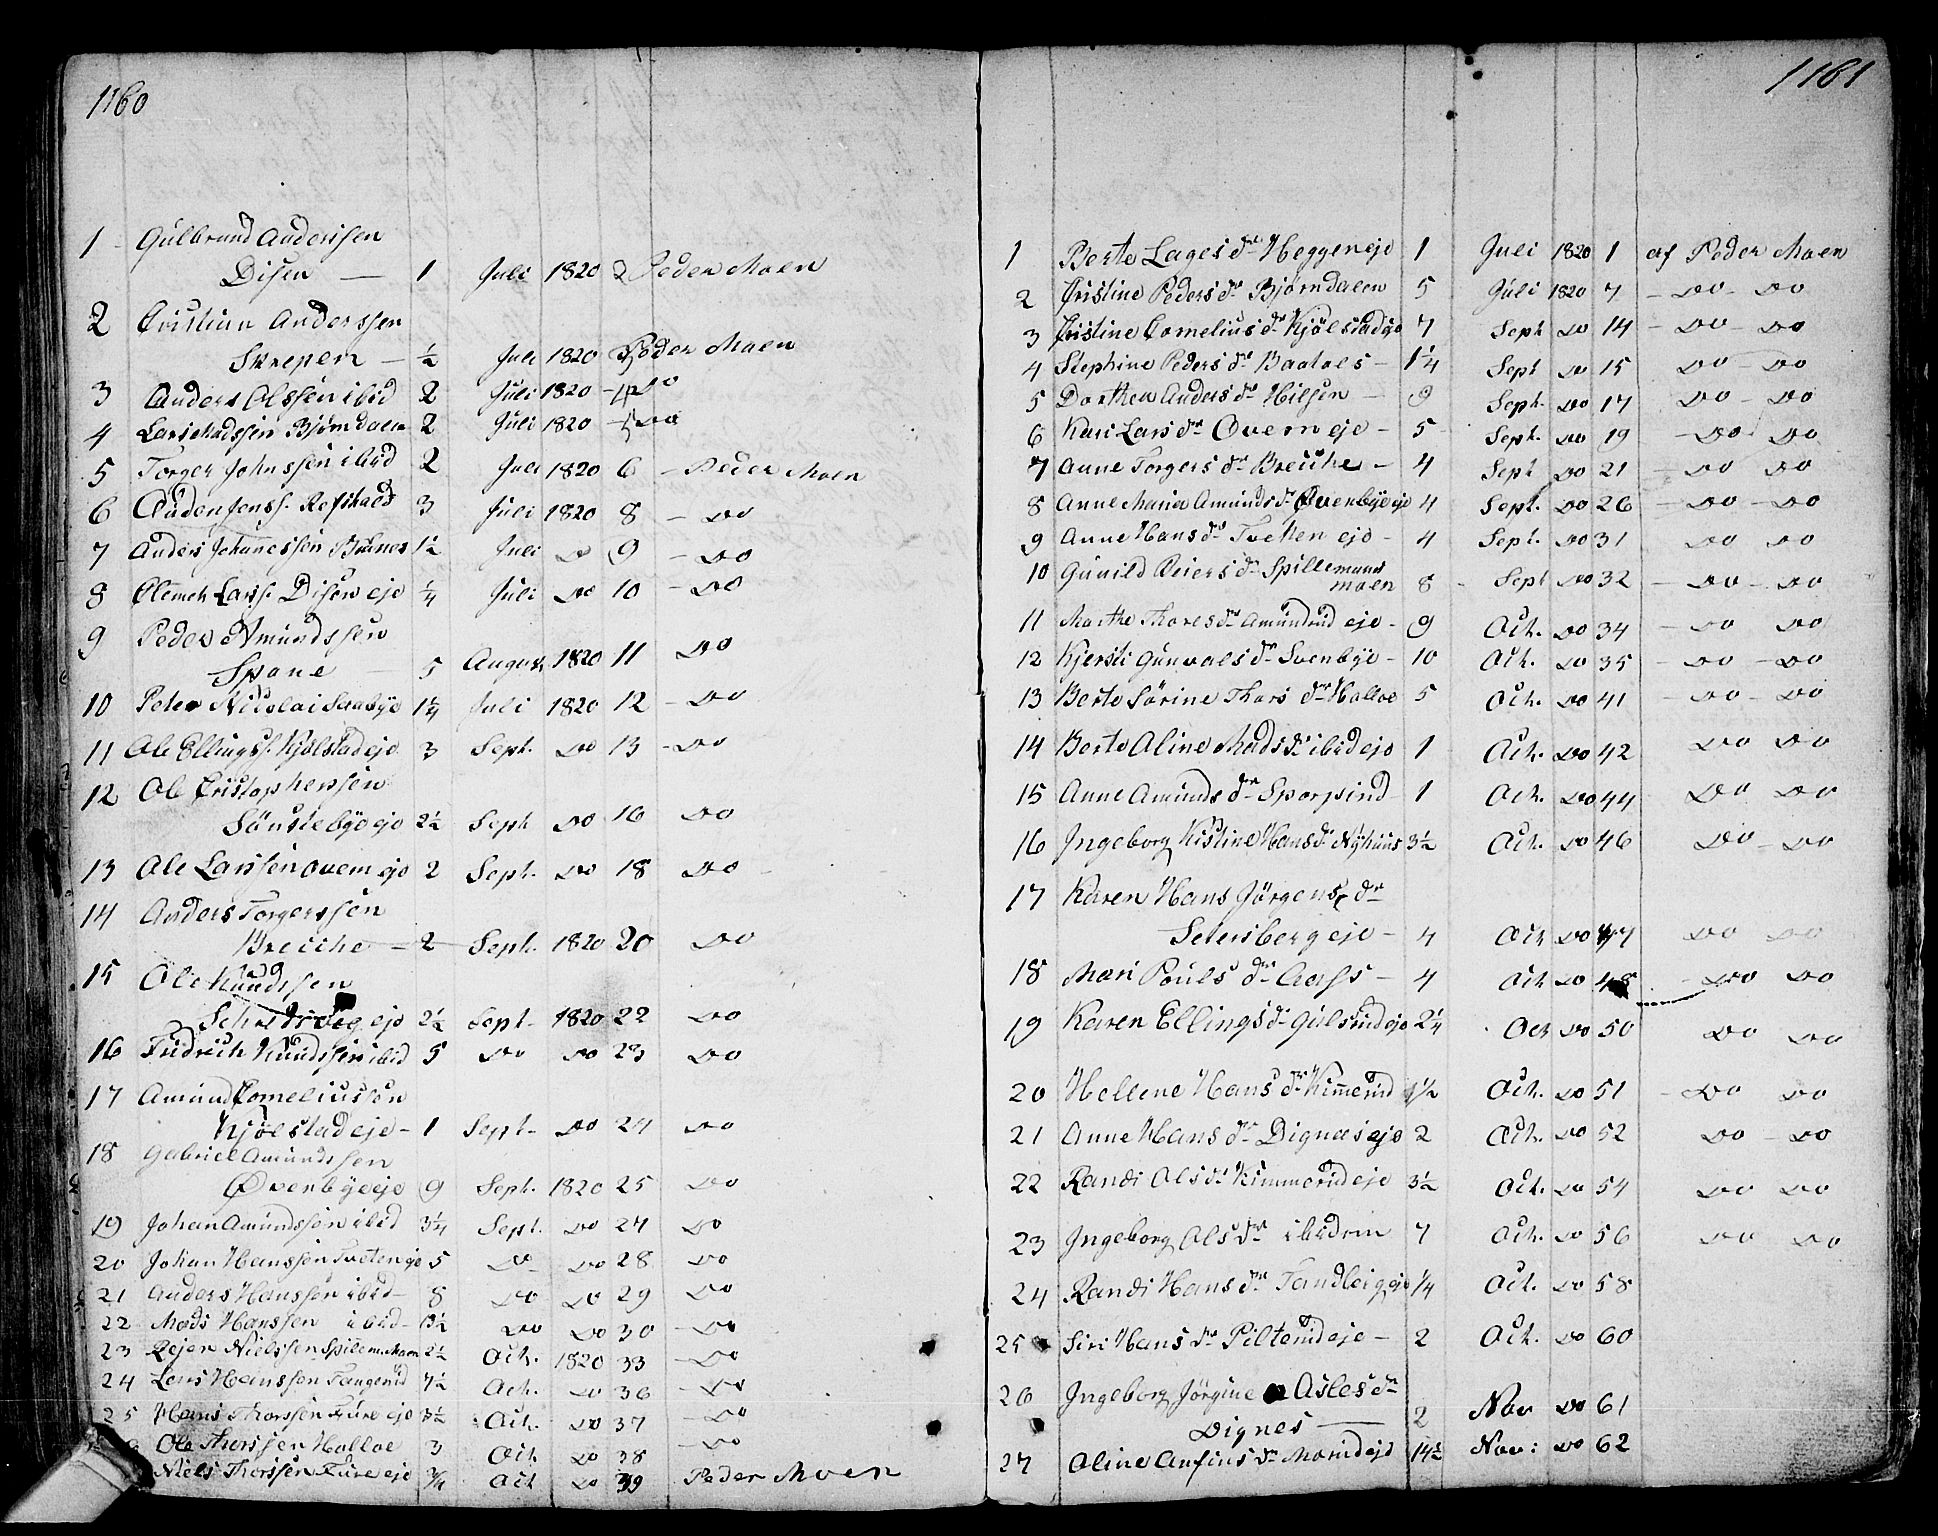 1160
1 Gulbrand Anderssen
Disen — 1 Juli 1820 2 Peder Moen
2 Cristian Anderssen
Skrepen — ½ Juli 1820 3 Peder Moen
3 Anders Olssen ibid 2 Juli 1820 — 4 Do
4 Lars Madssen Bjørndalen 2 Juli 1820 — 5 Do
5 Torger Johnssen ibid 2 Juli 1820 6 — Peder Moen
6 Auden Jenss. Refskald 3 Juli 1820 8 — Do
7 Anders Johanessen 1½ Juli Do 9 — Do
8 Clemet Larss. Disen eje ¼ Juli Do 10 — Do
9 Peder Amundssen
Spone 5 August 1820 11 Do
10 Peter Nicolai 1¼ Juli 1820 12 — Do
11 Ole Ellingss. Kjølstad eje 3 Sept. Do 13 — Do
12 Ole Cristophersen
Sønstebye eje 2½ Sept Do 16 Do
13 Ole Larssen Overn eje 2 Sept. Do 18 Do
14 Anders Torgerssen
Breiche — 2 Sept. 1820 20 Do
15 Ole Knudssen
eje 2½ Sept — 1820 22 Do
16 Fridrich Knudssen ibid 5 Do Do 23 Do
17 Amund Corneliussen
Kjølstad eje — 1 Sept — Do 24 Do
18 Gabriel Amundssen
Øvenbye eje 9 Sept. 1820 25 Do
19 Johan Amundssen ibid 3¼ Sept. Do 27 Do
20 Johan Hanssen Tveten eje 5 Do Do 28 Do
21 Anders Hanssen ibid — 8 Do Do 29 Do
22 Mads Hanssen ibid — 1½ Do Do 30 — Do
23 Rejer Nielssen Spillem. Moen 2½ Oct. 1820 33 — Do
24 Lars Hanssen 7½ Oct. Do 36 — Do
25 Hans Thorssen Fure eje 3½ Oct. Do 37 — Do
Ole Thorssen Holloe 3 Oct Do 38 — Do
Niels Thorssen Fure eje ¾ Oct Do 39 Peder Moen
1161
1 Berte Lages dtr Heggen eje 1 Juli 1820 1 af Peder Moen
2 Cristine Peders dtr Bjørndalen 5 Juli 1820 7 — Do — Do
3 Cristine Cornelius dtr Kjølstad eje 7 Sept Do 14 — Do — Do
4 Stephine Peders dtr Baaloes — 1¼ Sept Do 15 Do — Do
5 Dorthea Anders dtr Hilsen — 9 Sept. Do 17 Do — Do
6 Kari Lars dtr Overn eje — 5 Sept. Do 19 — Do Do
7 Anne Torgers dtr Breiche — 4 Sept Do 21 — Do Do
8 Anne Maria Amunds dtr Øvenbye eje 4 Sept. Do 26 — Do — Do
9 Anne Hans dtr Tveten eje — 4 Sept. Do 31 Do Do
10 Gunild Reiers dtr Spillemans
moen 8 — Sept Do 32 — Do — Do
11 Marthe Thores dtr Amundrud eje — 9 Oct. Do 34 — Do Do
12 Kjersti Gunvals dtr Svenbye — 10 Oct. Do 35 — Do — Do
13 Berte Sørine Thors dtr Holloe 5 Oct. Do 41 — Do — Do
14 Berte Aline Mads dtr ibid eje 1 Oct. Do 42 Do Do
15 Anne Amunds dtr Sporpind 1 Oct. Do 44 Do Do
16 Ingeborg Kistine Hans dtr Nyhuus 3½ Oct. Do 46 Do — Do
17 Karen Hans Jørgens dtr
Setersberg eje — 4 Oct Do 47 Do Do
18 Mari Pouls dtr Aass — 4 Oct Do 48 — Do Do
19 Karen Ellings dtr Gulsrud eje 2¼ Oct Do 50 Do Do
20 Hellene Hans dtr Kimerud 1½ Oct. Do 51 — Do Do
21 Anne Hans dtr Dignes eje 2 Oct. Do 52 Do — Do
22 Randi Ols dtr Kimmerud eje 3½ Oct. Do 54 Do Do
23 Ingeborg Ols dtr ibidem 7 Oct. Do 56 Do Do
24 Randi Hans dtr Tandberg eje ¼ Oct. Do 58
25 Siri Hans dtr Pilterud eje — 2 Oct. Do 60
26 Ingeborg Jørgine Asles dtr
Dignes — 2 Nov Do 61
27 Oline Anfins dtr Morud eje 14½ Nov: Do 62